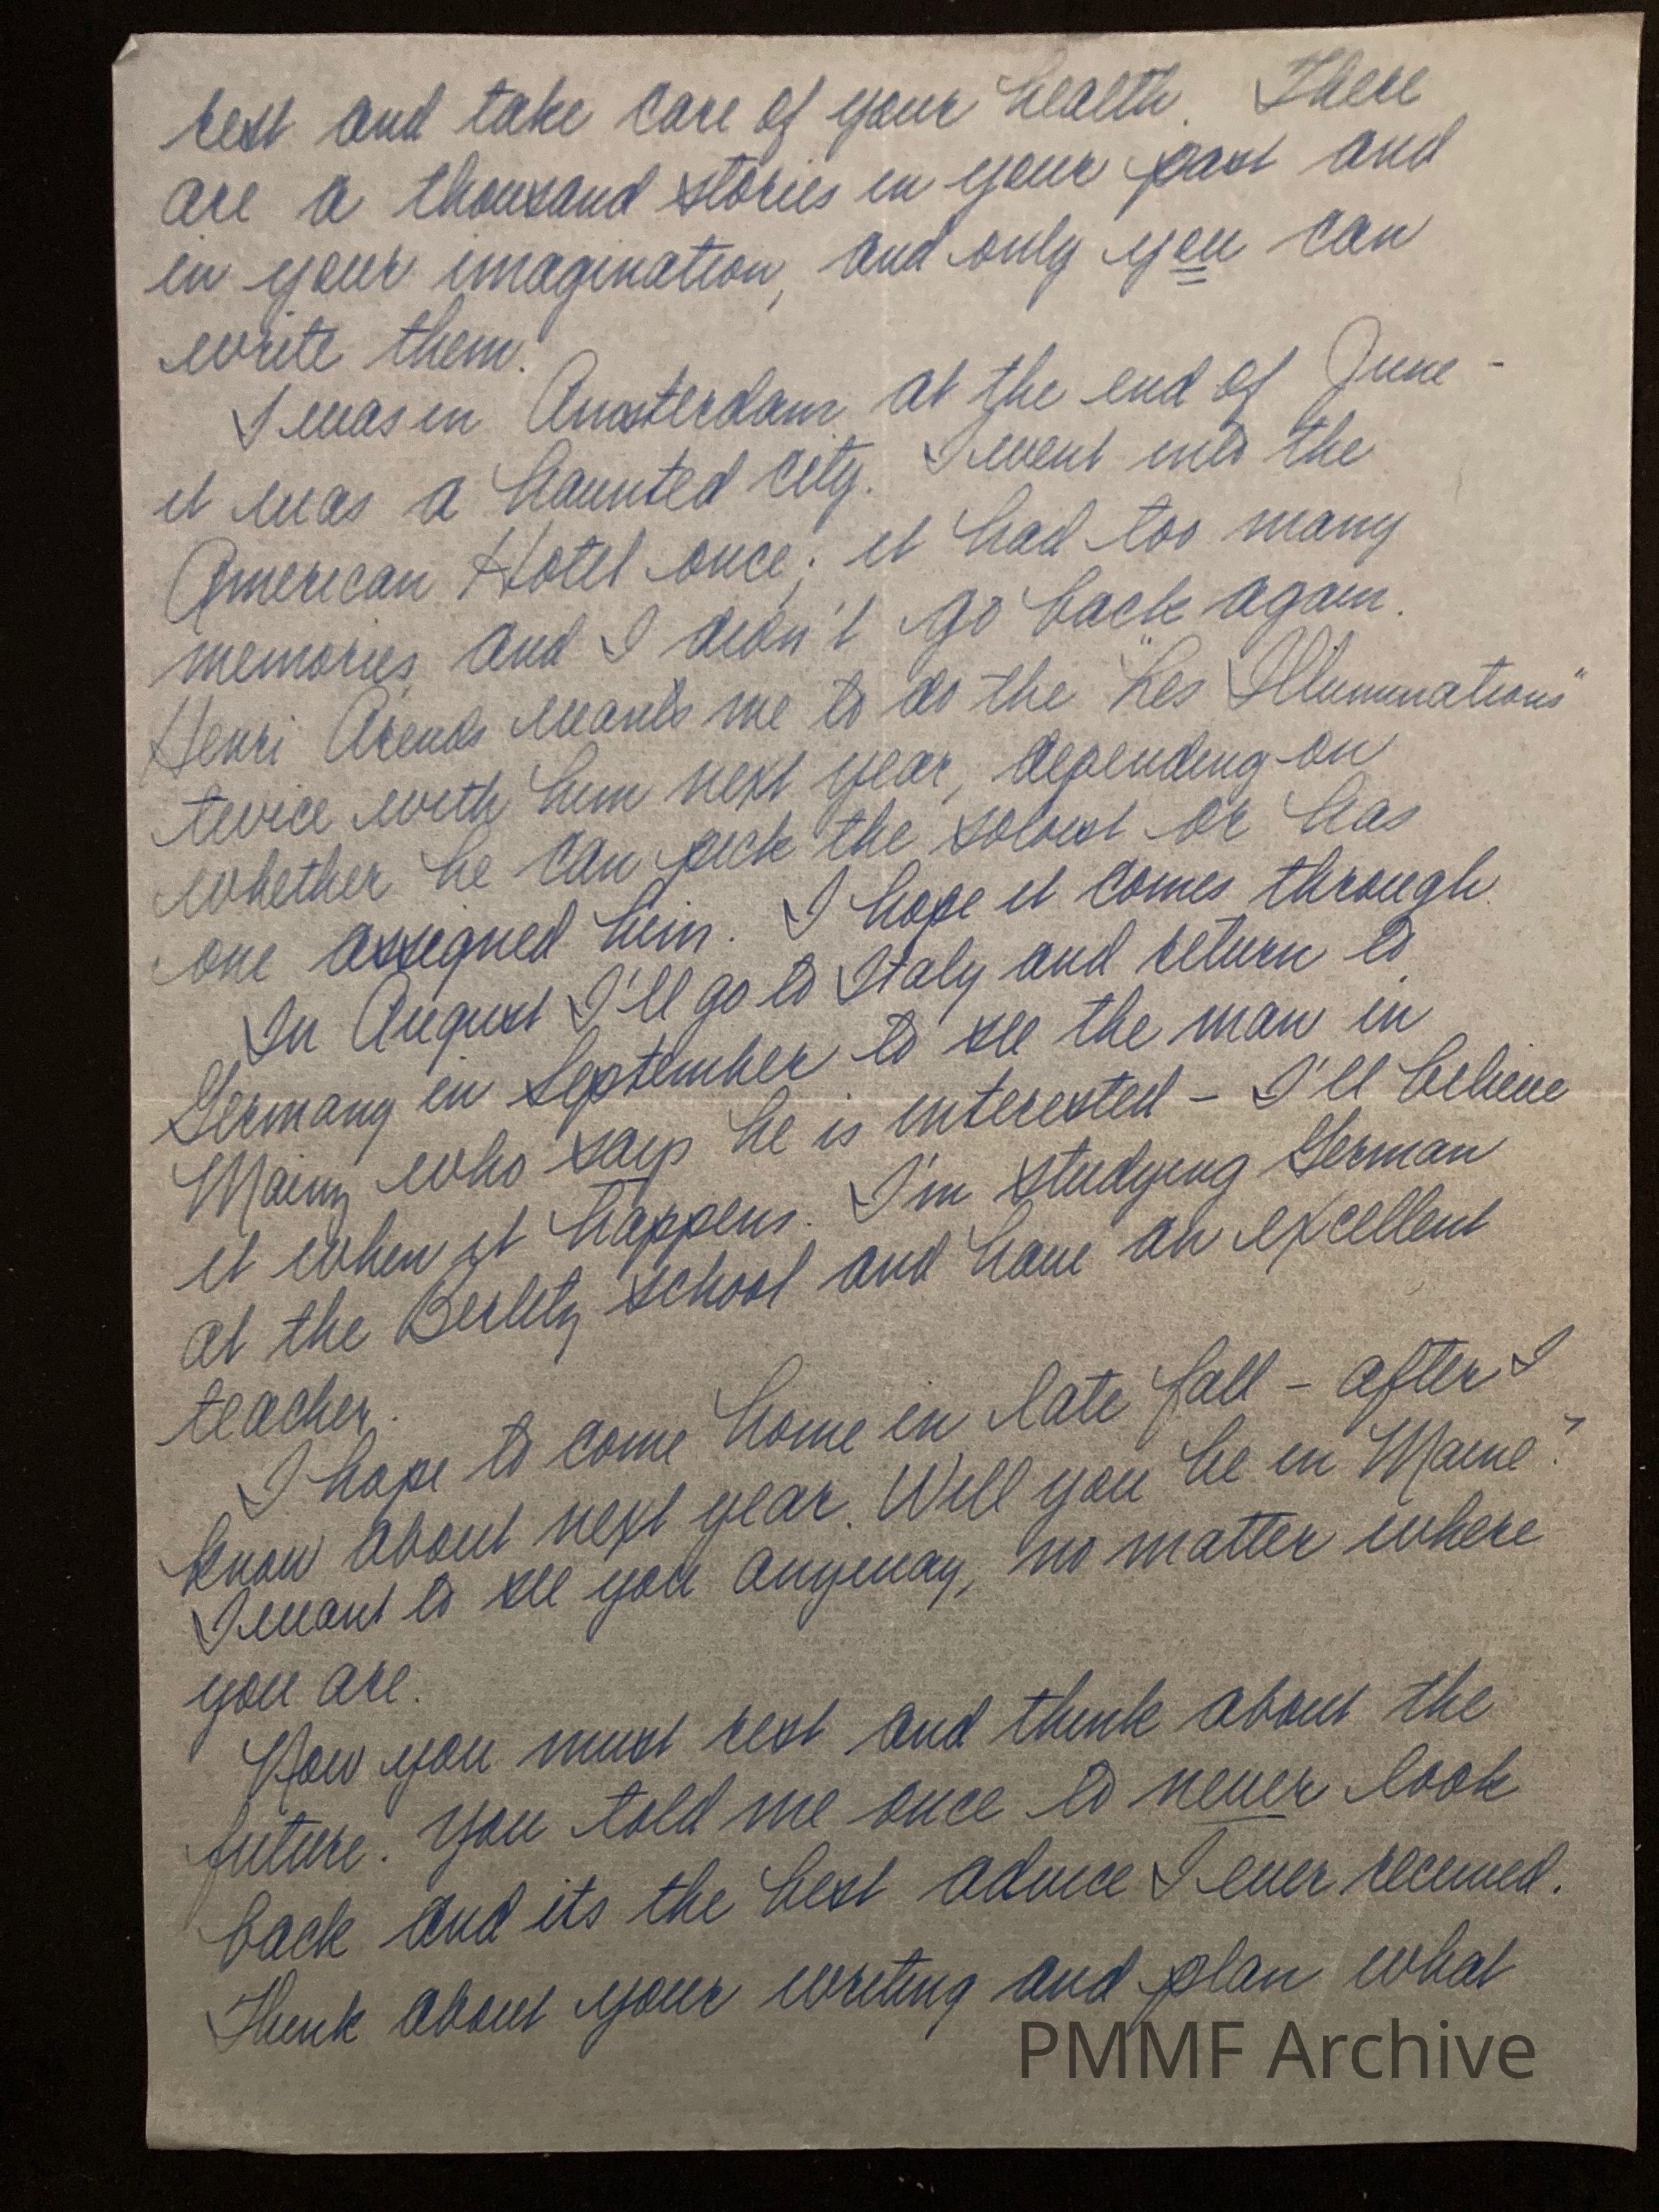 rest and take care of your health. There
are a thousand stories in your past and
in your imagination, and only you can
write them.
I was in Amsterdam at the end of June -
it was a haunted city. I went into the
American Hotel once; it had too many
memories and I didn't go back again.
Henri Arends wants me to do the "Les Illuminations"
twice with him next year, depending on
whether he can pick the soloist or has
one assigned him. I hope it comes through.
In August I'll go to Italy and return to
Germany in September to see the man in
Mainz who says he is interested - I'll believe
it when it happens. I'm studying German
at the Berlitz school and have an excellent
teacher.
I hope to come home in late fall - after I
know about next year. Will you be in Maine?
I want to see you anyway, no matter where
you are.
Now you must rest and think about the
future. You told me once to never look
back and its the best advice I ever received.
Think about your writing and plan what
PMMF Archive